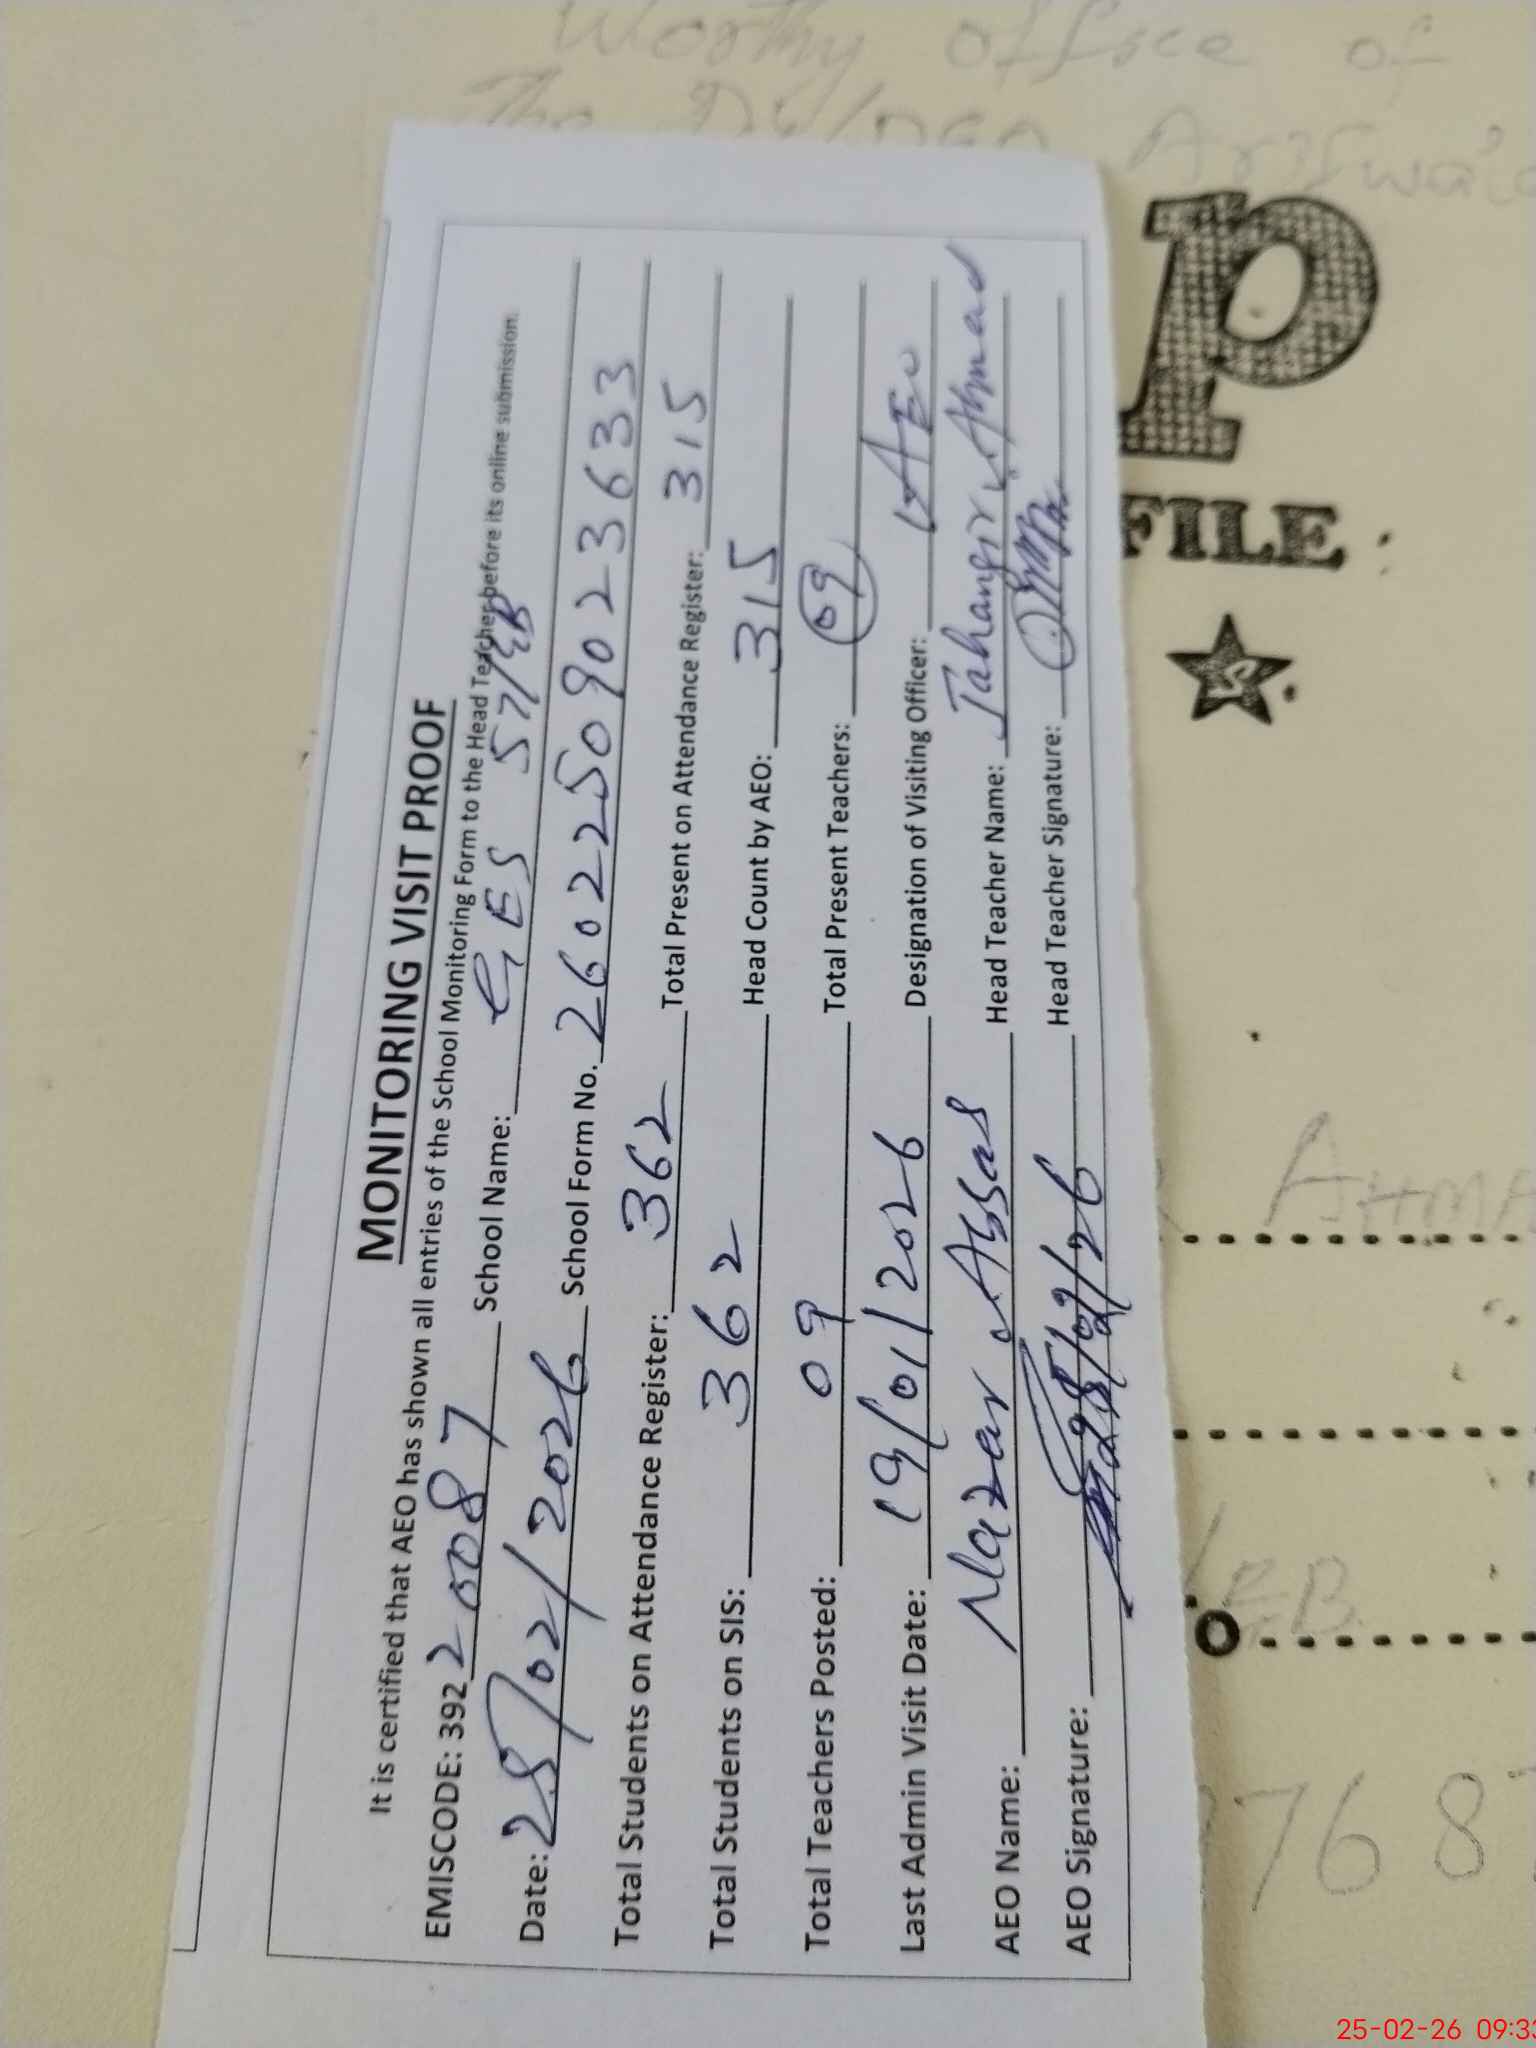 Worthy office of
The Dy/DEO Arifwala
MONITORING VISIT PROOF
It is certified that AEO has shown all entries of the School Monitoring Form to the Head Teacher before its online submission.
EMISCODE: 39220087 School Name: GES 57/EB
Date: 25/02/2026 School Form No. 26022509023633
Total Students on Attendance Register: 362 Total Present on Attendance Register: 315
Total Students on SIS: 362 Head Count by AEO: 315
Total Teachers Posted: 09 Total Present Teachers: 09
Last Admin Visit Date: 19/01/2026 Designation of Visiting Officer: AEO
AEO Name: Nazar Abbas Head Teacher Name: Jahangir Ahmad
AEO Signature: 25/02/26 Head Teacher Signature:
P
FILE
VS
AHMA
EB
768
25-02-26 09:33